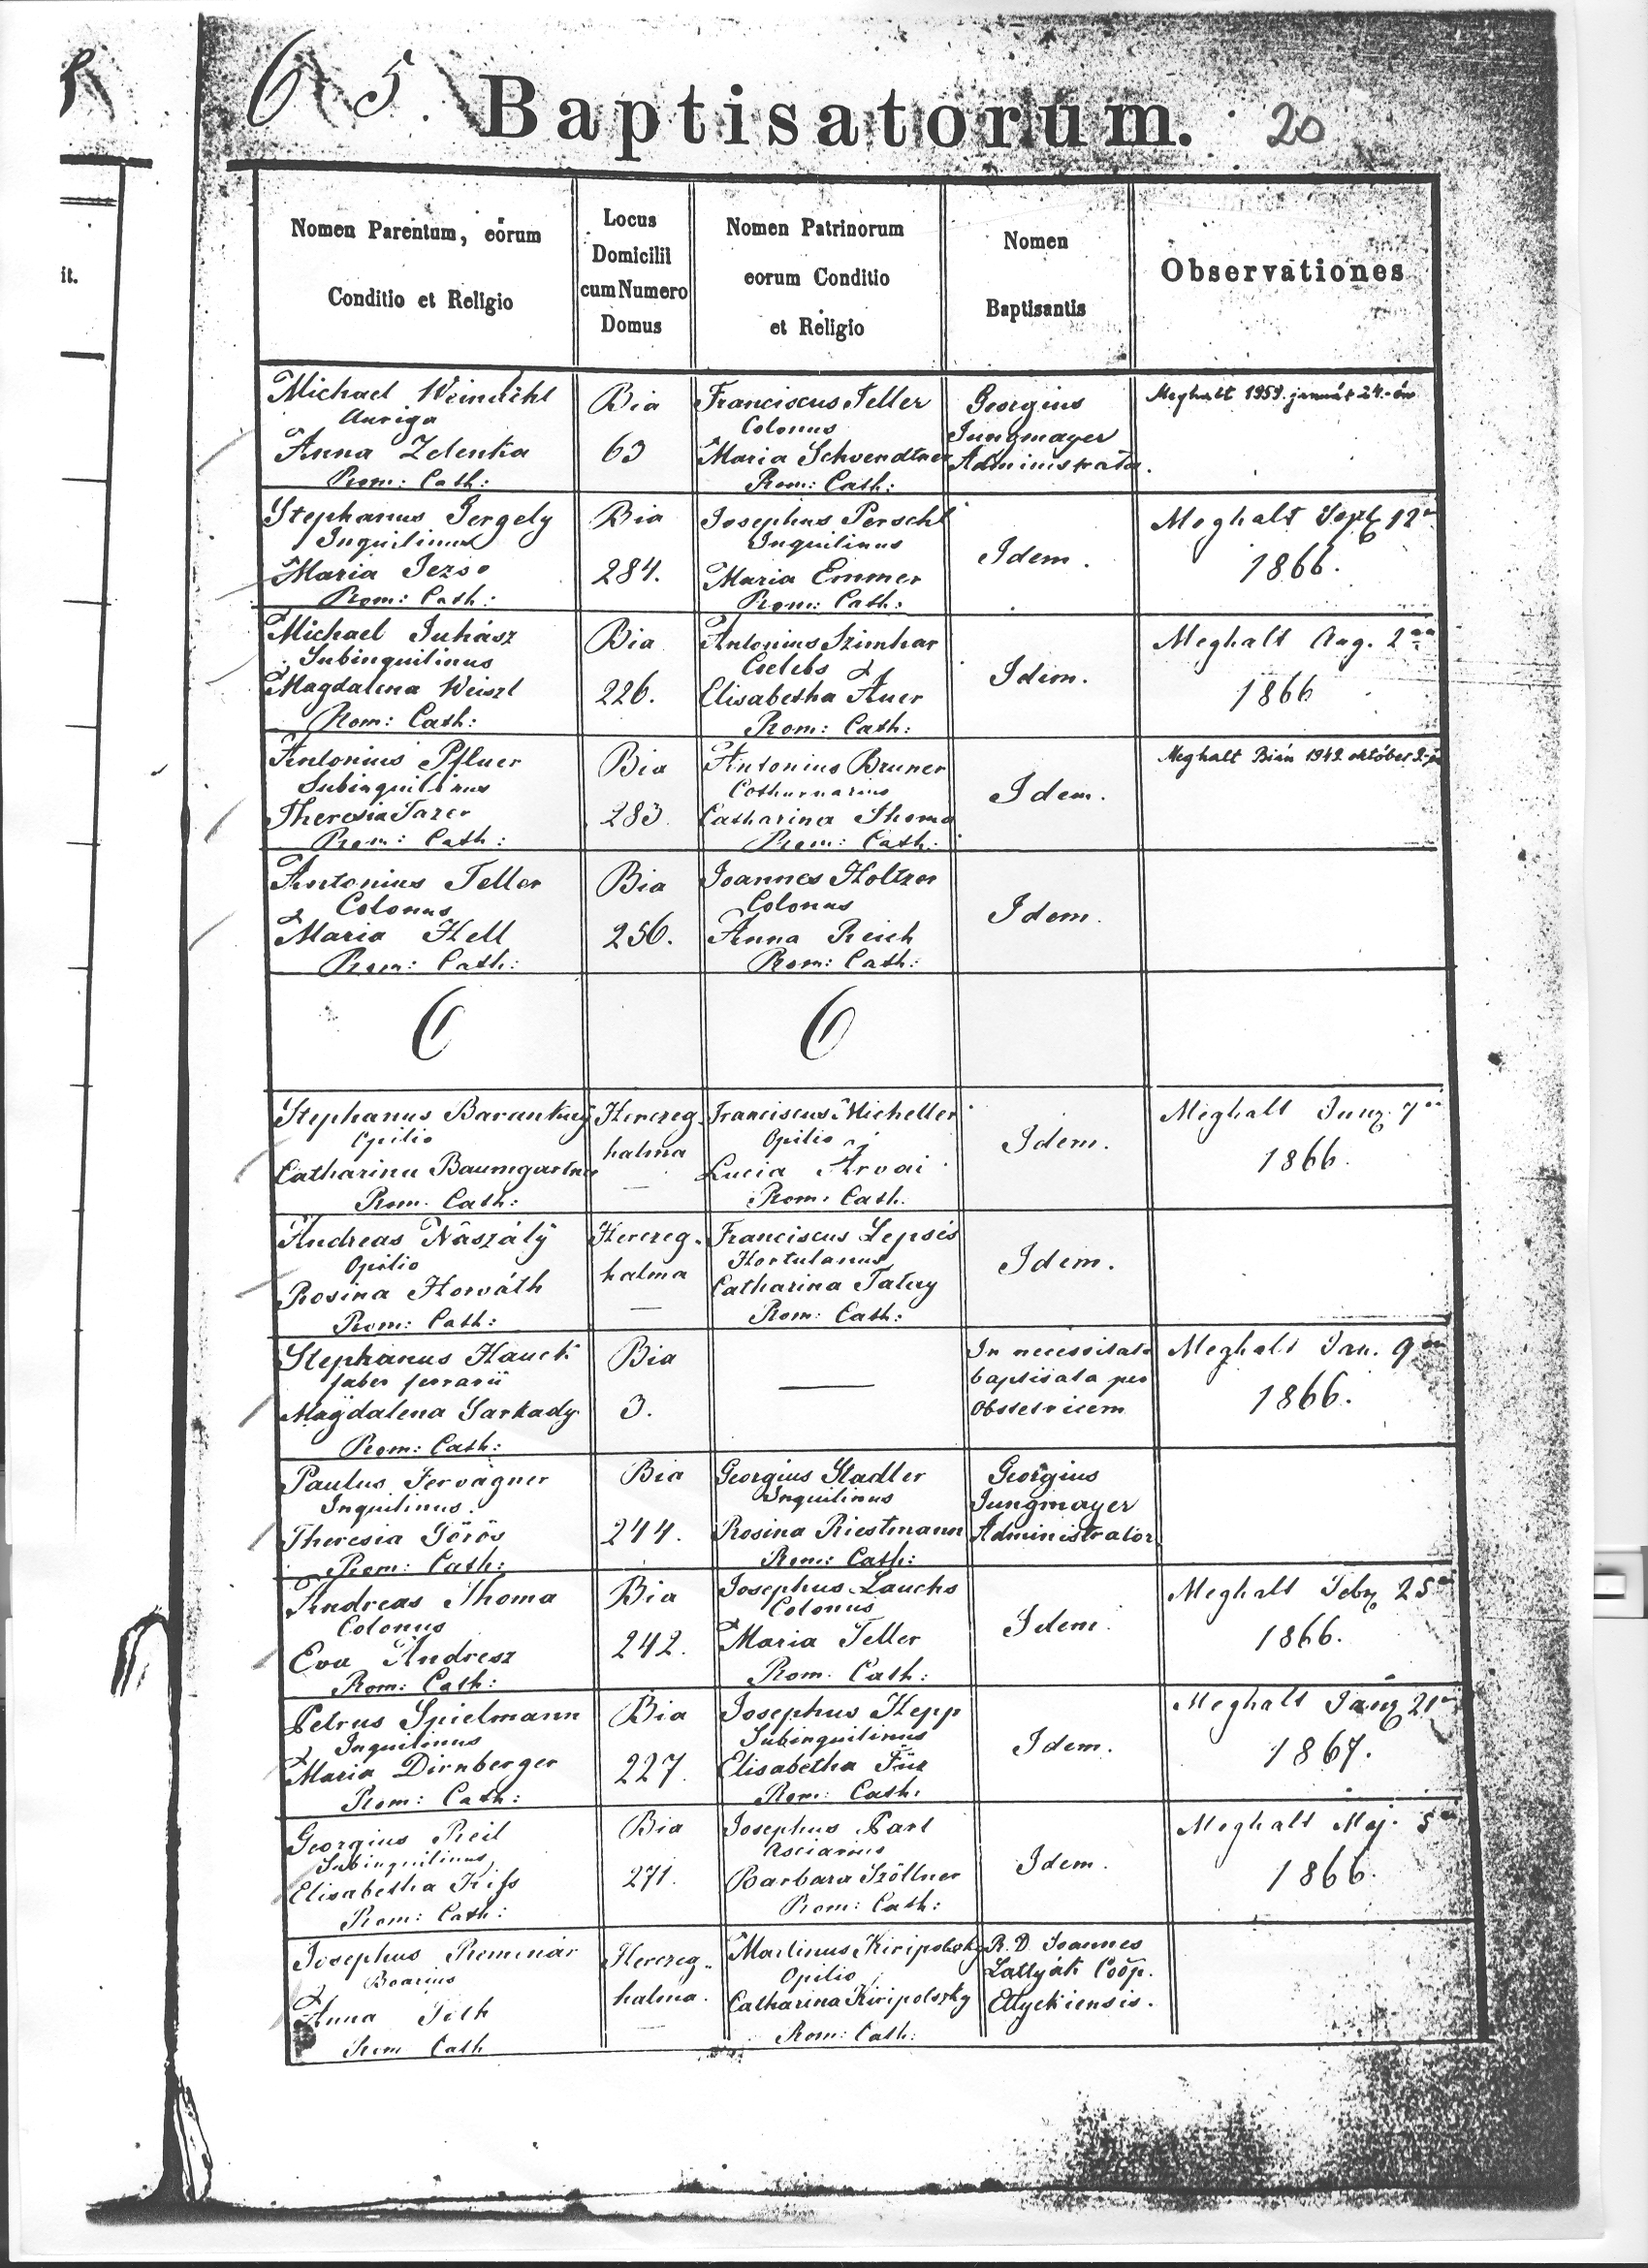 65.
Baptisatorum.
20
it.
Nomen Parentum, eorum
Conditio et Religio
Locus
Domicilii
cum Numero
Domus
Nomen Patrinorum
eorum Conditio
et Religio
Nomen
Baptisantis
Observationes
Michael
Auriga
Anna Zelenka
Rom: Cath:
Bia
63
Franciscus Teller
Colonus
Maria Schvendtner
Rom: Cath:
Georgius
Jungmayer
Administrator.
Meghalt 1959. január 24.-én
Stephanus Gergely
Inquilinus
Maria Jezso
Rom: Cath:
Bia
284.
Josephus Perschl
Inquilinus
Maria Emmer
Rom: Cath:
Idem.
Meghalt Sept 12
1866.
Michael Juhász
Subinquilinus
Magdalena Weiszl
Rom: Cath:
Bia
226.
Antonius Szimhar
Caelebs
Elisabetha Auer
Rom: Cath:
Idem.
Meghalt Aug. 2
1866
Antonius Pfluer
Subinquilinus
Theresia
Rom: Cath:
Bia
283.
Antonius Bruner
Cothurnarius
Catharina Thoma
Rom: Cath:
Idem.
Meghalt Bián 1942. október
Antonius Teller
Colonus
Maria Hell
Rom: Cath:
Bia
256.
Joannes Holtzer
Colonus
Anna Reich
Rom: Cath:
Idem.
6
6
Stephanus Barankay
Opilio
Catharina Baumgartner
Rom. Cath:
Herczeg-
halma
Franciscus Micheller
Opilio
Lucia Árvai
Rom. Cath.
Idem.
Meghalt 7
1866.
Andreas Naszály
Opilio
Rosina Horváth
Rom: Cath:
Herczeg-
halma
Franciscus Lepsés
Hortulanus
Catharina Tatay
Rom: Cath:
Idem.
Stephanus Hauck
faber ferrarii
Magdalena Sarkady
Rom: Cath:
Bia
3.
In necessitate
baptisata per
Obstetricem
Meghalt Jan. 9
1866.
Paulus Fervagner
Inquilinus.
Theresia Görös
Rom: Cath:
Bia
244.
Georgius Stadler
Inquilinus
Rosina Riestmann
Rom: Cath:
Georgius
Jungmayer
Administrator
Andreas Thoma
Colonus
Eva Andresz
Rom: Cath:
Bia
242.
Josephus Lauchs
Colonus
Maria Teller
Rom. Cath:
Idem.
Meghalt Feb 25
1866.
Petrus Spielmann
Inquilinus
Maria Dirnberger
Rom: Cath:
Bia
227.
Josephus Hepp
Subinquilinus
Elisabetha Füz
Rom: Cath:
Idem.
Meghalt 21
1867.
Georgius Reil
Subinquilinus
Elisabetha Kiss
Rom: Cath:
Bia
271.
Josephus Parl
Asciarius
Barbara Szöllner
Rom: Cath:
Idem.
Meghalt Maj. 5
1866.
Josephus Reminár
Boarius
Anna Tóth
Rom Cath
Herczeg-
halma.
Martinus Kiripolszky
Opilio
Catharina Kiripolszky
Rom: Cath:
R. D. Joannes
Lattyák Coop.
Etyekiensis.